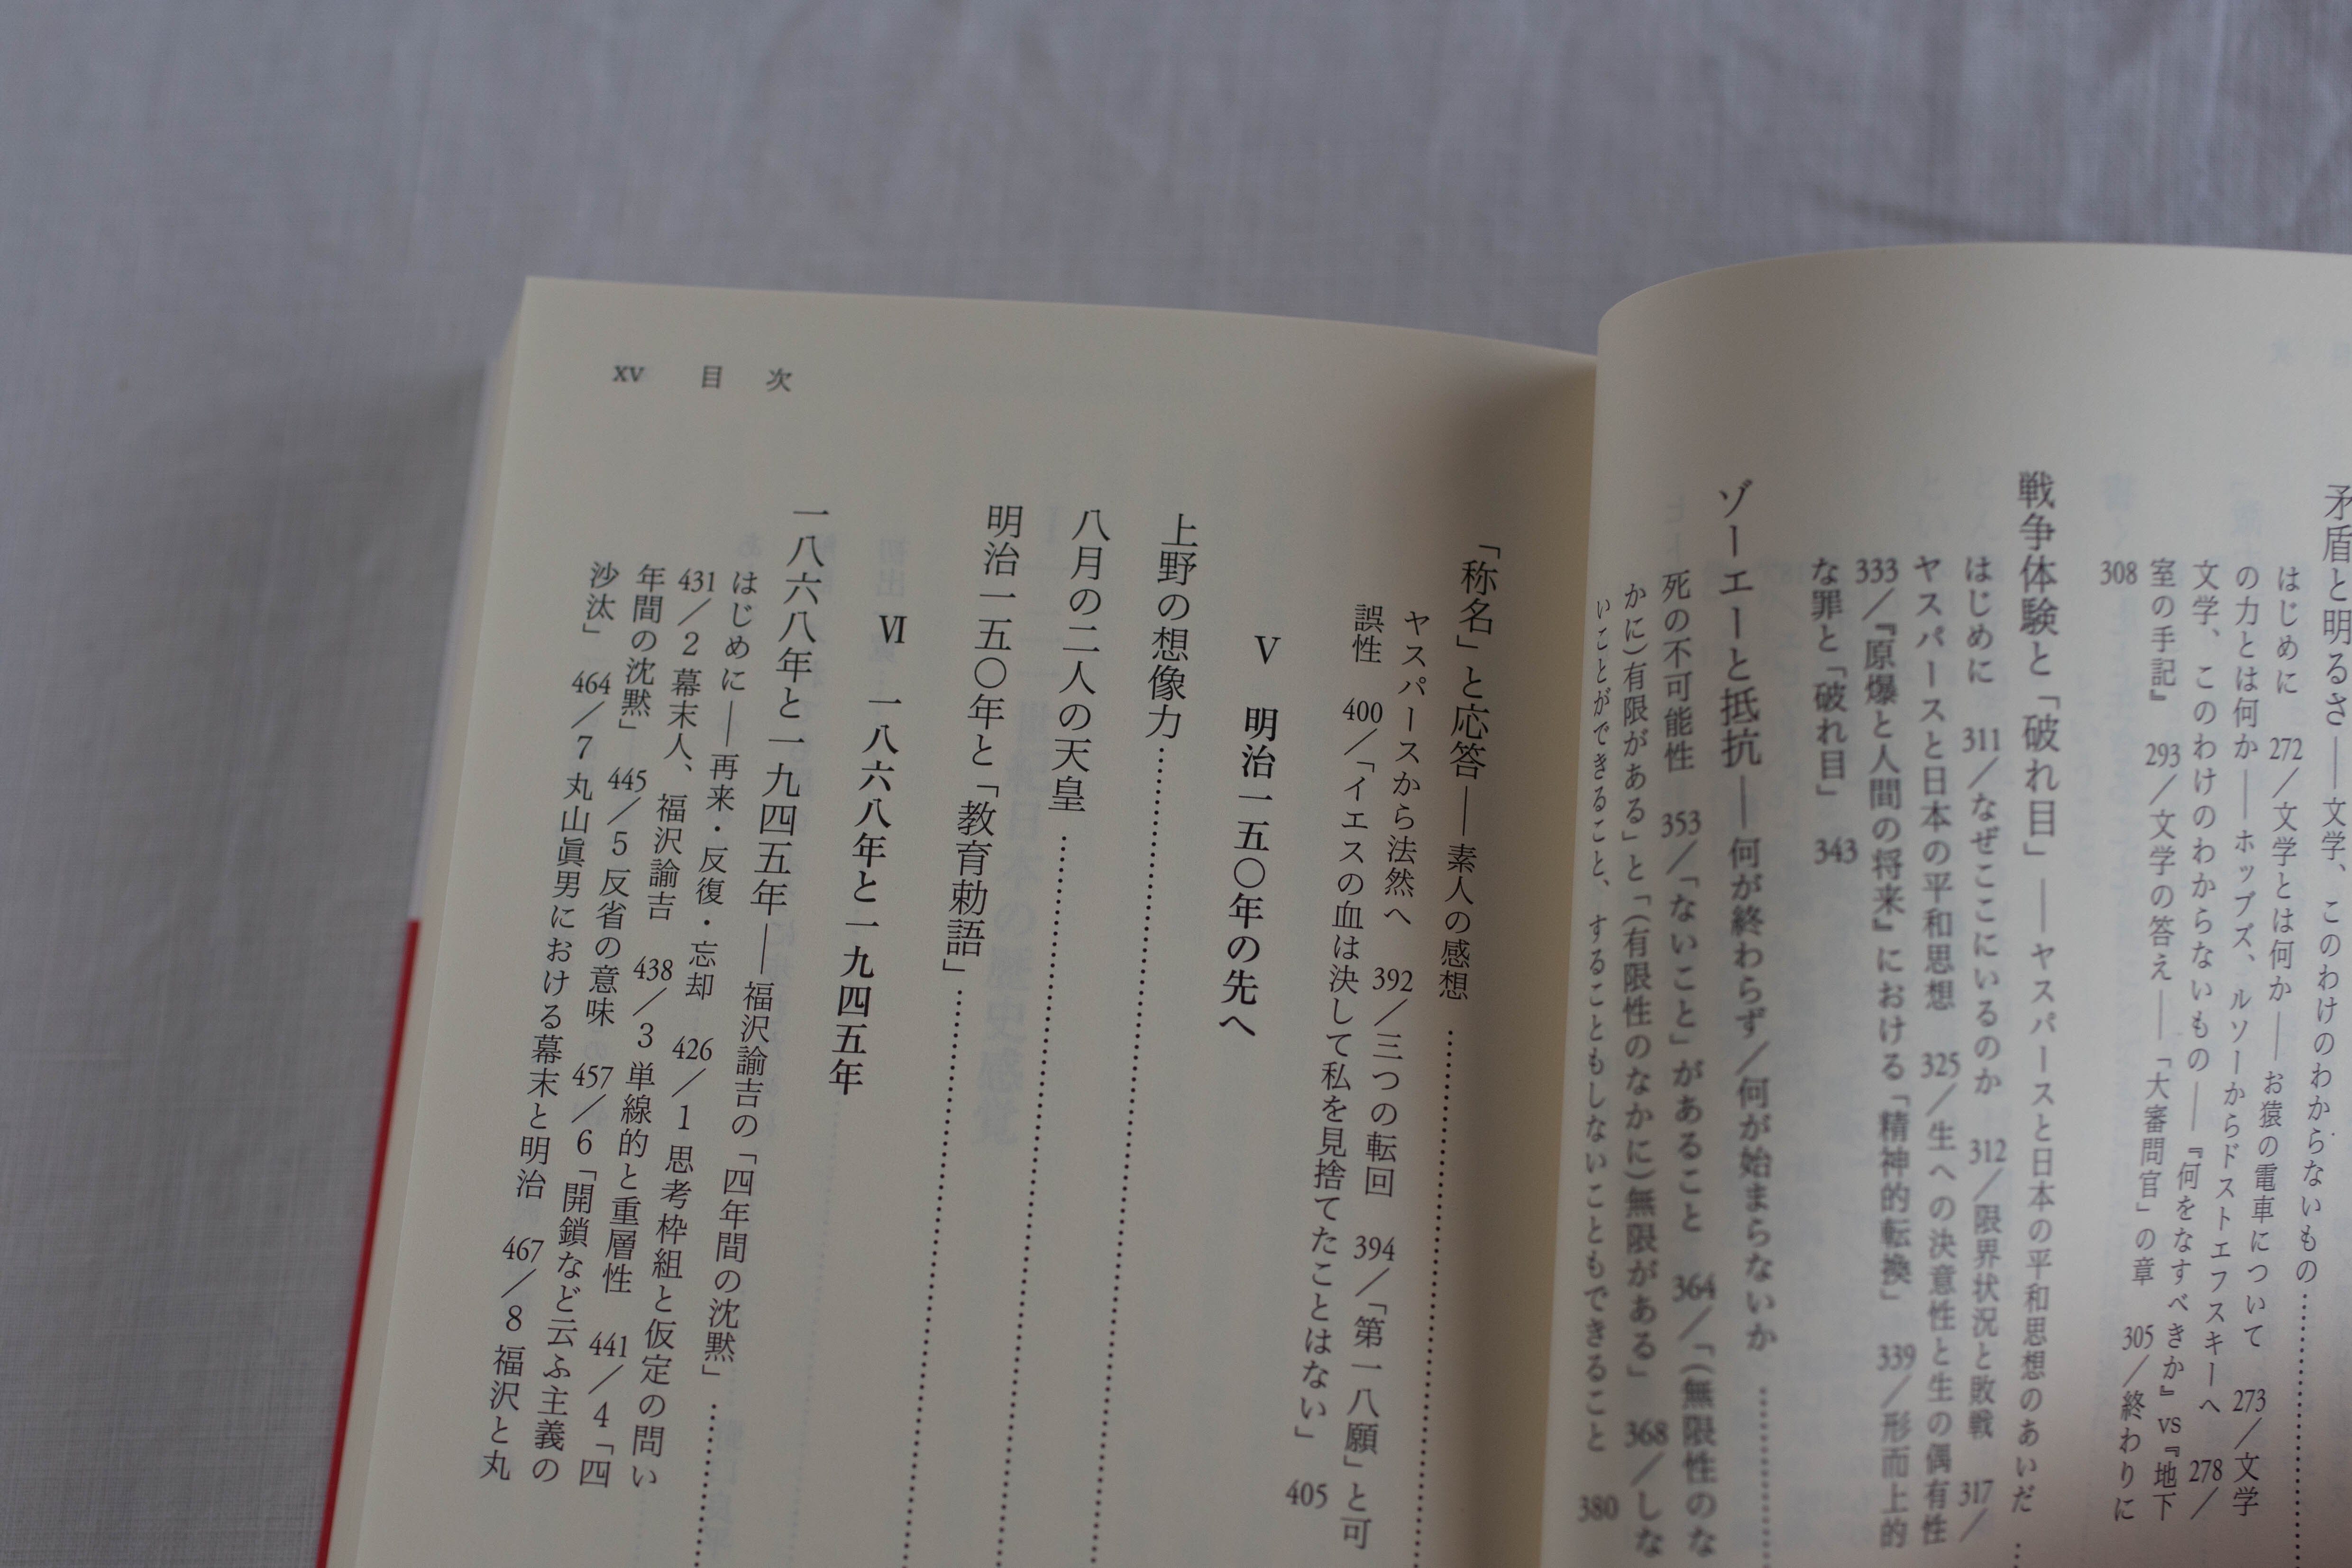 矛盾と明るさ――文学、このわけのわからないもの……
はじめに 272／文学とは何か――お猿の電車について 273／文学
の力とは何か――ホッブズ、ルソーからドストエフスキーへ 278／
文学、このわけのわからないもの――『何をなすべきか』vs『地下
室の手記』 293／文学の答え――「大審問官」の章 305／終わりに
308
戦争体験と「破れ目」――ヤスパースと日本の平和思想のあいだ……
はじめに 311／なぜここにいるのか 312／限界状況と敗戦 317／
ヤスパースと日本の平和思想 325／生への決意性と生の偶有性
333／『原爆と人間の将来』における「精神的転換」 339／形而上的
な罪と「破れ目」 343
ゾーエーと抵抗――何が終わらず／何が始まらないか……
死の不可能性 353／「ないこと」があること 364／「(無限性のな
かに)有限がある」と「(有限性のなかに)無限がある」 368／しな
いことができること、することもしないこともできること 380
「称名」と応答――素人の感想……
ヤスパースから法然へ 392／三つの転回 394／「第一八願」と可
誤性 400／「イエスの血は決して私を見捨てたことはない」 405
Ⅴ 明治一五〇年の先へ
上野の想像力……
八月の二人の天皇……
明治一五〇年と「教育勅語」……
Ⅵ 一八六八年と一九四五年
一八六八年と一九四五年――福沢諭吉の「四年間の沈黙」……
はじめに――再来・反復・忘却 426／1 思考枠組と仮定の問い
431／2 幕末人、福沢諭吉 438／3 単線的と重層性 441／4「四
年間の沈黙」 445／5 反省の意味 457／6「開鎖など云ふ主義の
沙汰」 464／7 丸山眞男における幕末と明治 467／8 福沢と丸
xv 目次